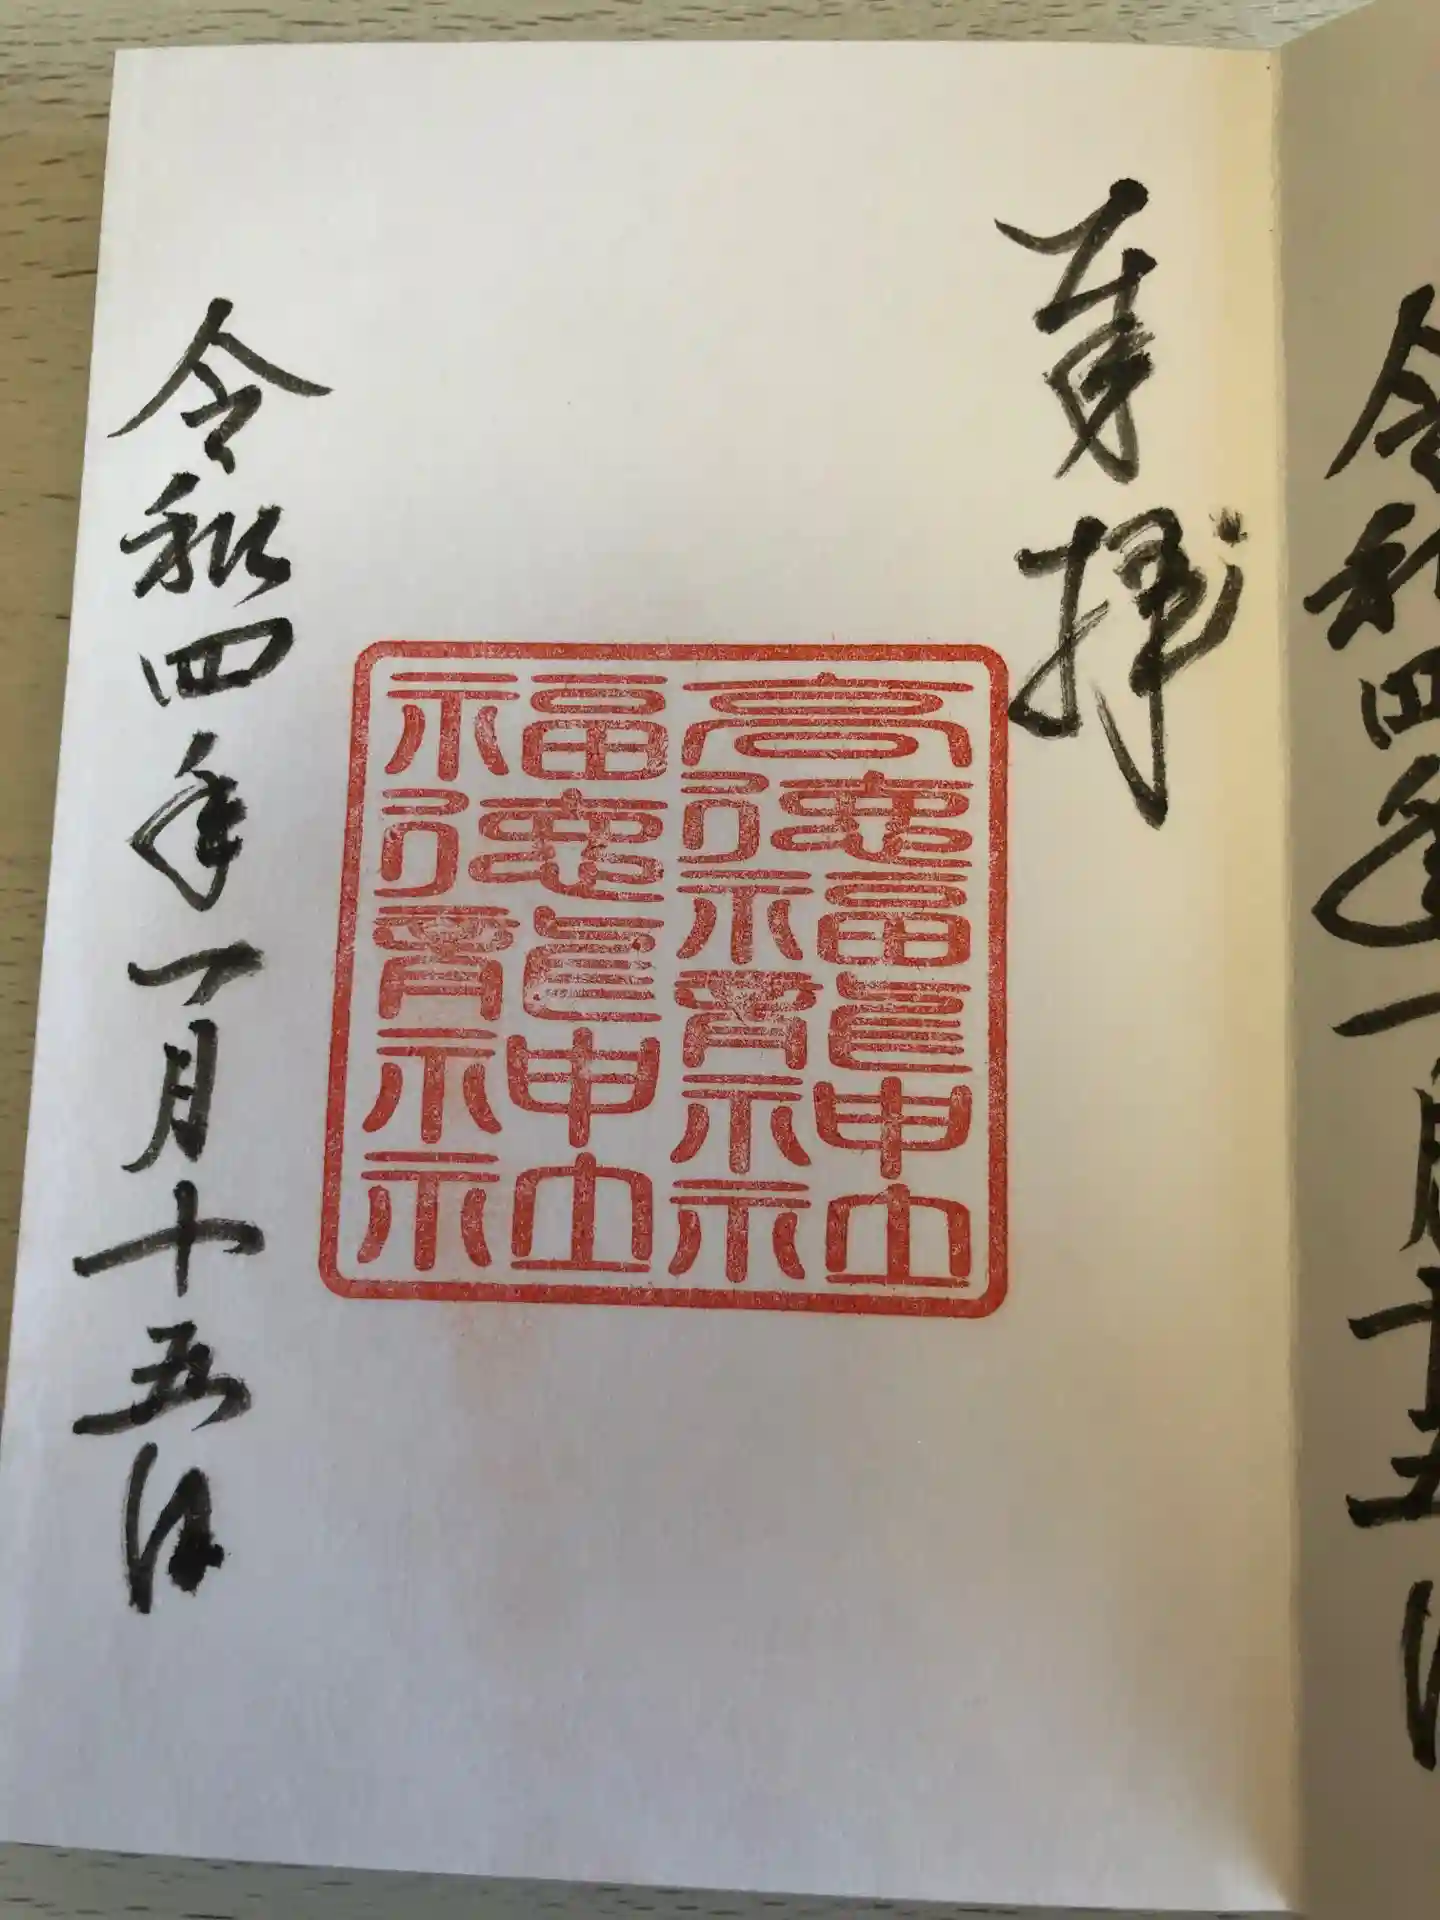 令和四年一月十五日
奉拝
高徳福龍神社
福徳龍神社
令和四年一月十五日